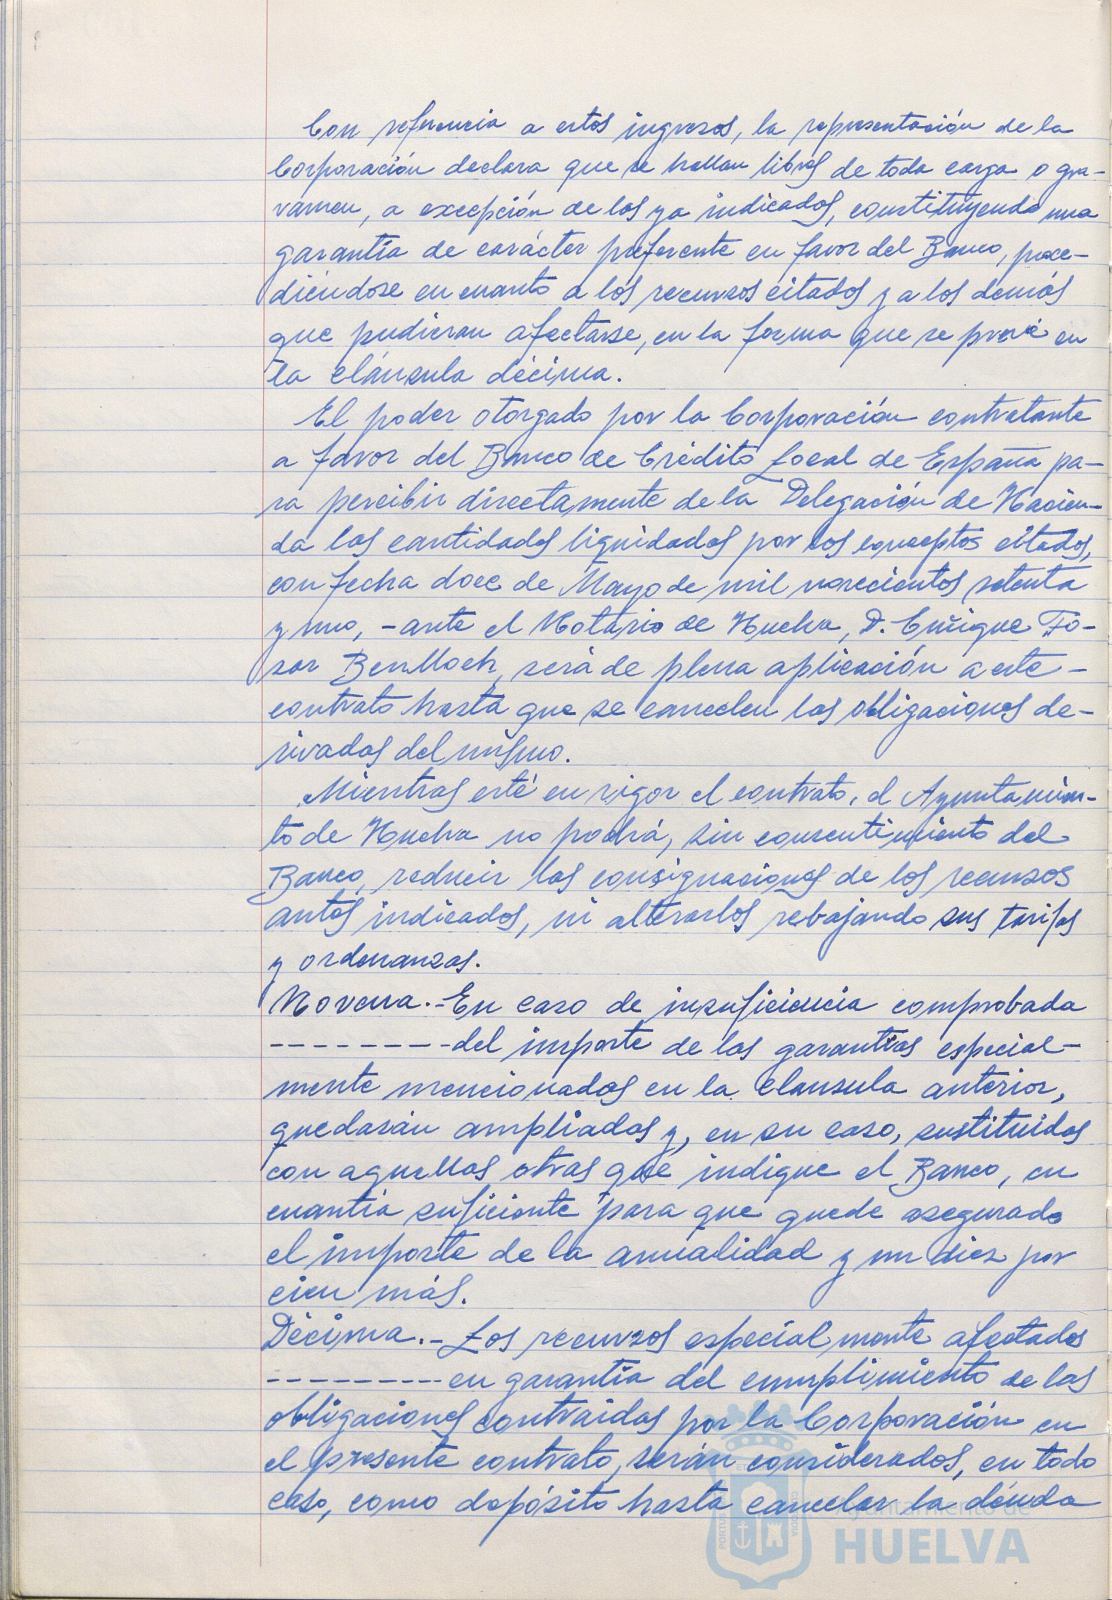 Con referencia a estos ingresos, la representación de la
Corporación declara que se hallan libres de toda carga o gra-
vamen, a excepción de los ya indicados, constituyendo una
garantía de carácter preferente en favor del Banco, proce-
diéndose en cuanto a los recursos citados y a los demás
que pudieran afectarse, en la forma que se prevé en
la cláusula décima.
El poder otorgado por la Corporación contratante
a favor del Banco de Crédito Local de España pa-
ra percibir directamente de la Delegación de Hacien-
da las cantidades liquidadas por los conceptos citados,
con fecha doce de Mayo de mil novecientos setenta
y uno, - ante el Notario de Huelva, D. Enrique Fo-
sar Benlloch, será de plena aplicación a este -
contrato hasta que se cancelen las obligaciones de-
rivadas del mismo.
Mientras esté en vigor el contrato, el Ayuntamien-
to de Huelva no podrá, sin consentimiento del
Banco, reducir las consignaciones de los recursos
antes indicados, ni alterarlos rebajando sus tarifas
y ordenanzas.
Novena.- En caso de insuficiencia comprobada
--------- del importe de las garantías especial-
mente mencionadas en la clausula anterior,
quedarán ampliadas y, en su caso, sustituidas
con aquellas otras que indique el Banco, en
cuantía suficiente para que quede asegurado
el importe de la anualidad y un diez por
cien más.
Décima.- Los recursos especialmente afectados
---------- en garantía del cumplimiento de las
obligaciones contraidas por la Corporación en
el presente contrato, serán considerados, en todo
caso, como depósito hasta cancelar la deuda
Ayuntamiento de
HUELVA